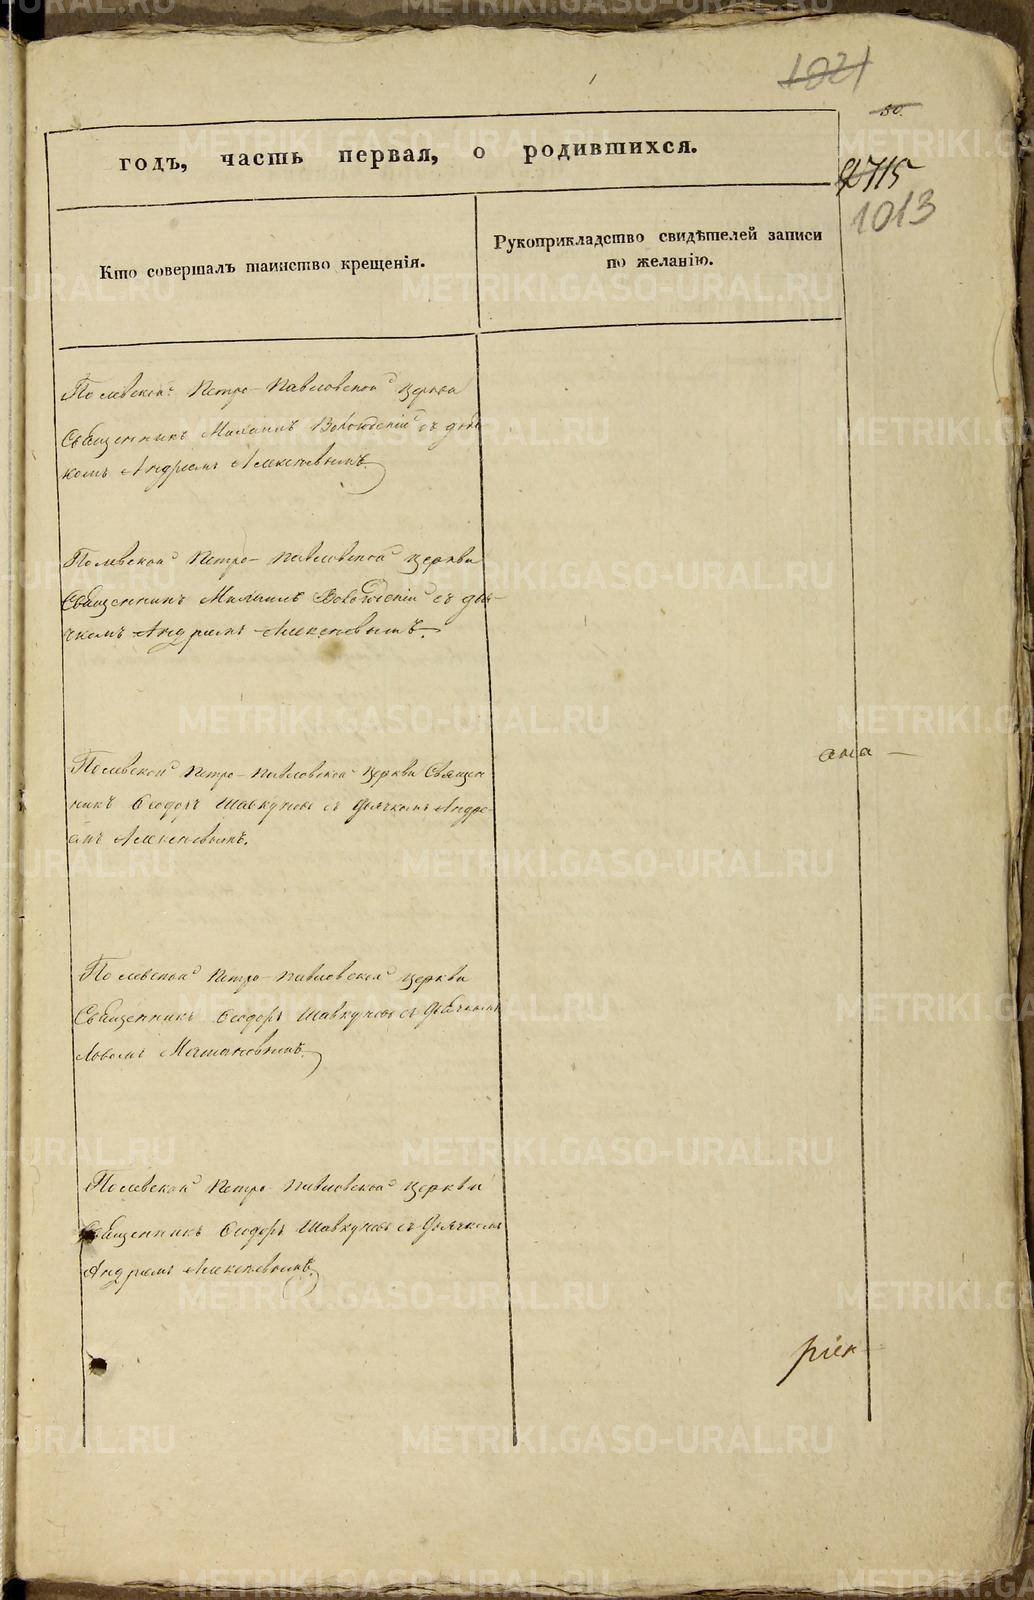 1021
50.
годъ, часть первая, о родившихся.
715
1013
Кто совершалъ таинство крещенія.
Рукоприкладство свидѣтелей записи
по желанію.
Полевской Петро-Павловской церкви
Священникъ Михаилъ съ дьяч
комъ Андреемъ Алексѣевымъ.
Полевской Петро-Павловской церкви
Священникъ Михаилъ съ дья-
чкомъ Андреемъ Алексѣевымъ.
Полевской Петро-Павловской церкви Священ
никъ Ѳеодоръ Шавкуновъ съ дьячкомъ Андре
емъ Алексѣевымъ.
Полевской Петро-Павловской церкви
Священникъ Ѳеодоръ Шавкуновъ съ дьячкомъ
Полевской Петро-Павловской церкви
Священникъ Ѳеодоръ Шавкуновъ съ дьячкомъ
Андреемъ Алексѣевымъ.
METRIKI.GASO-URAL.RU